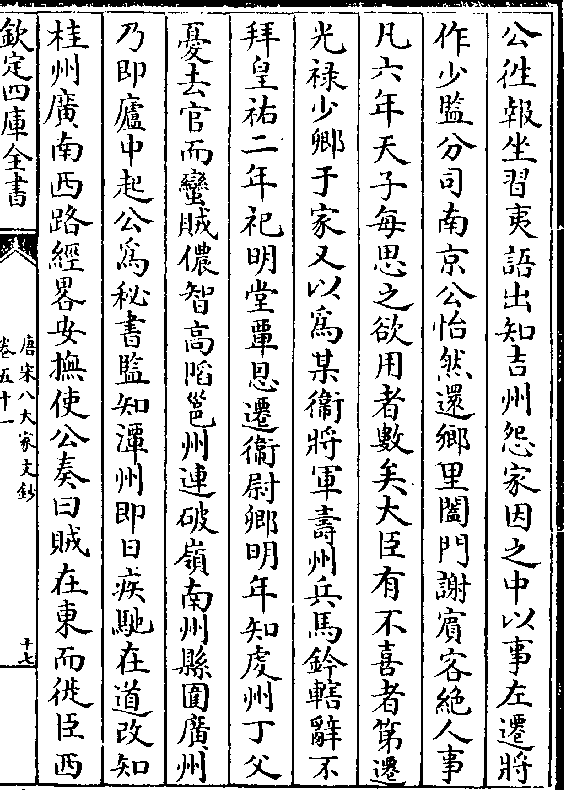 公徃報坐習夷語出知吉州怨家因之中以事左遷將
作少監分司南京公怡然還鄉里闔門謝賓客絶人事
凡六年天子每思之欲用者數矣大臣有不喜者第遷
光禄少卿于家又以爲某衛將軍壽州兵馬鈐轄辭不
拜皇祐二年祀明堂覃恩遷衛尉卿明年知虔州丁父
憂去官而蠻賊儂智高䧟邕州連破嶺南州縣圍廣州
乃即廬中起公爲秘書監知潭州即日疾馳在道改知
桂州廣南西路經畧安撫使公奏曰賊在東而徙臣西
欽定四庫全書
唐宋八大家文鈔
卷五十一
十七